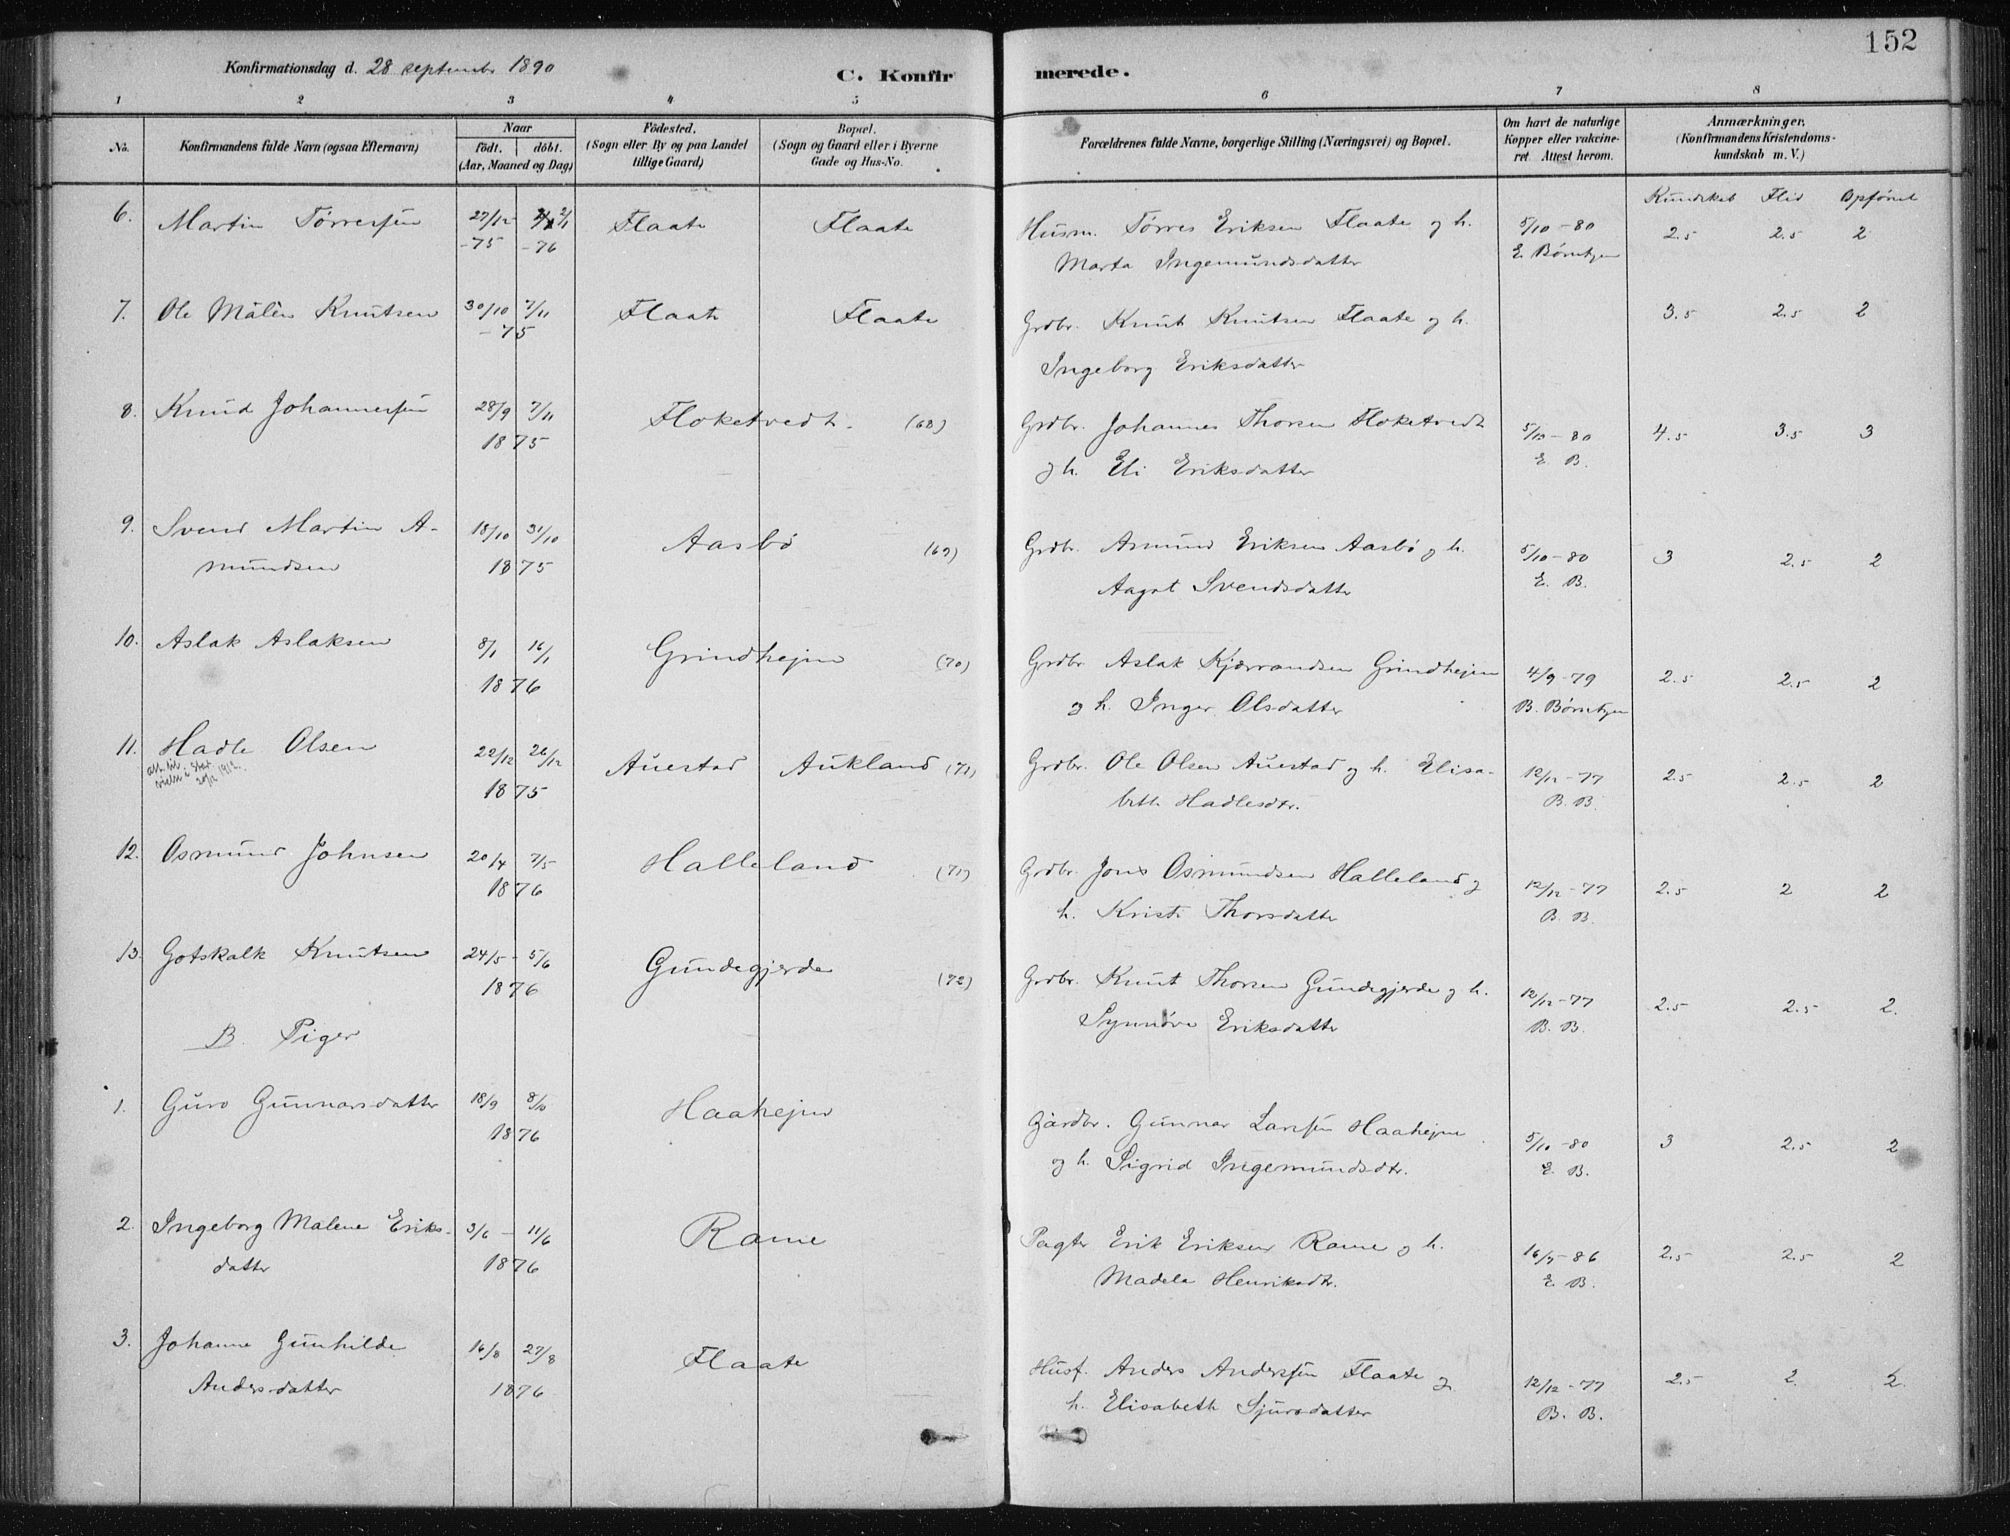 152
Konfirmationsdag d. 28 septembr 1890
C. Konfirmerede.
1 2 3 4 5 6 7 8
No.
Konfirmandens fulde Navn (ogsaa Efternavn)
Naar
födt. döbt.
(Aar, Maaned og Dag)
Födested.
(Sogn eller By og paa Landet
tillige Gaard)
Bopæl.
(Sogn og Gaard eller i Byerne
Gade og Hus-No.
Forældrenes fulde Navne, borgerlige Stilling (Næringsvei) og Bopæl.
Om havt de naturlige
Kopper eller vakcine-
ret Attest herom.
Anmærkninger.
(Konfirmandens Kristendoms-
kundskab m. V.)
Kundskab Flid Opførsel
6. Martin Tørressen 27/12 2/1 Flaate Flaate Husm. Tørres Eriksen Flaate og h. 5/10-80 2.5 2.5 2
-75 -76 Marta Ingemundsdatter E. Børntzen
7. Ole Målèn Knutsen 30/10 7/11 Flaate Flaate Grdbr. Knut Knutsen Flaate og h. 3.5 2.5 2
-75 Ingeborg Eriksdatter
8. Knud Johannessen 28/9 7/11 Floketvedt. (68) Grdbr. Johannes Thorsen Floketvedt 5/10-80 4.5 3.5 3
1875 og h. Eli Eriksdatter E. B.
9. Svend Martin A- 18/10 31/10 Aasbö (69) Grdbr. Asmund Eriksen Aasbö og h. 5/10-80 3 2.5 2
mundsen 1875 Aagot Svendsdatter E. B.
10. Aslak Aslaksen 8/1 16/1 Grindhejm (70) Grdbr Aslak Kjærrandsen Grindhejm 4/9-79 2.5 2.5 2
1876 og h. Inger Olsdatter B. Børntzen
11. Hadle Olsen 22/12 26/12 Auestad Aukland (71) Grdbr. Ole Olsen Auestad og h. Elisa- 12/12-77 2.5 2.5 2
1875 beth Hadlesdtr. B. B.
12. Osmund Johnsen 20/4 7/5 Halleland (71) Grdbr. Jons Osmundsen Halleland og 12/12-77 2.5 2 2
1876 h. Kristi Thorsdatter B. B.
13. Gotskalk Knutsen 24/5 - 5/6 Gundegjerde (72) Grdbr. Knut Thorsen Gundegjerde og h. 12/12-77 2.5 2.5 2.
1876 Synnöve Eriksdatter B. B.
B. Piger
1. Guro Gunnarsdatter 18/9 8/10 Haahejm Gårdbr. Gunnar Larssen Haahejm 5/10-80 3 2.5 2
1876 og h. Sigrid Ingemundsdtr. E. B.
2. Ingeborg Malene Eriks- 3/6 - 11/6 Rame Pagter Erik Eriksen Rame og h. 16/7-86 2.5 2.5 2
datter 1876 Madela Henriksdtr. E. B.
3. Johanne Gunhilde 16/8 27/8 Flaate Husf. Anders Anderssen Flaate og 12/12-77 2.5 2. 2.
Andersdatter 1876 h. Elisabeth Sjursdatter B. B.